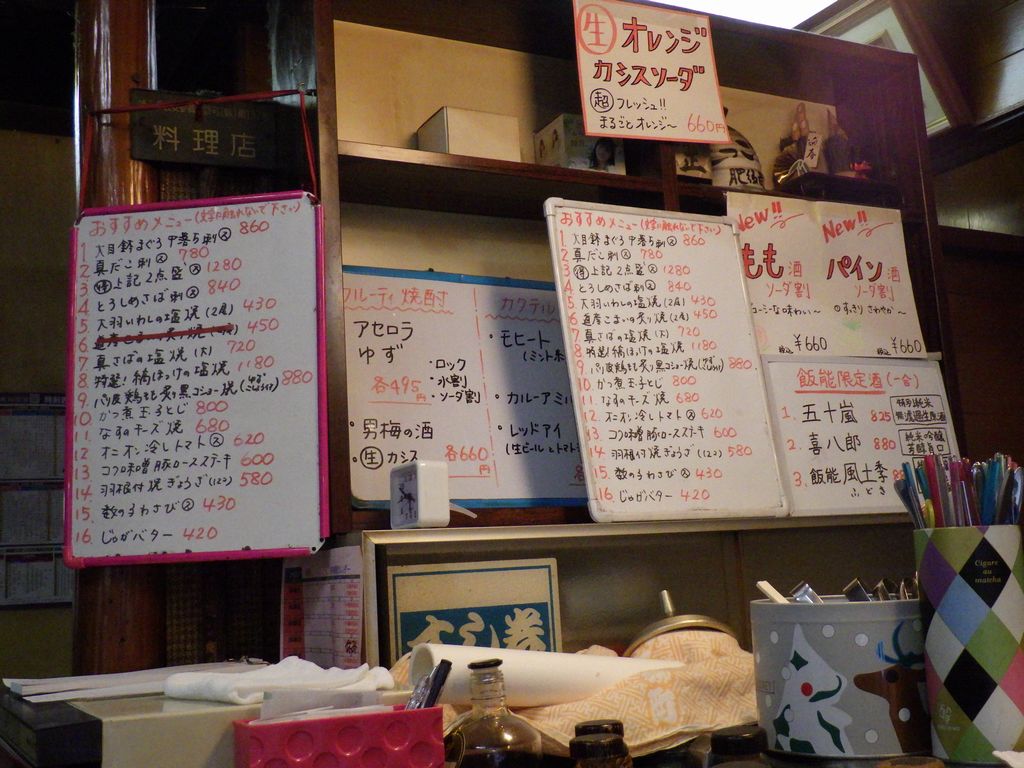 料理店
おすすめメニュー(文字に触れないで下さい)
1 大目鉢まぐろ中落ち刺 860
2 真だこ刺 780
3 得 上記2点盛 1280
4 とろしめさば刺 840
5 大羽いわしの塩焼(2尾) 430
6 450
7 真さばの塩焼(大) 720
8 特選!縞ほっけの塩焼 1180
9 880
10 かつ煮玉子とじ 800
11. なすのチーズ焼 680
12 オニオン冷しトマト 620
13 コク味噌豚ロースステーキ 600
14 羽根付焼ぎょうざ 580
15. 数の子わさび 430
16. じゃがバター 420
フルーティ焼酎
アセロラ
ゆず
・ロック
・水割
・ソーダ割
各495円
・男梅の酒
・生 カシス
各660円
カクテル
・モヒート
(ミント
・カルーアミル
・レッドアイ
(生ビールとトマト
生 オレンジ
カシスソーダ
超 フレッシュ!!
まるごとオレンジ〜 660円
おすすめメニュー(文字に触れないで下さい)
1 大目鉢まぐろ中落ち刺 860
2 真だこ刺 780
3 得 上記2点盛 1280
4 とろしめさば刺 840
5 大羽いわしの塩焼(2尾) 430
6 道産こまいの炙り焼(3尾) 450
7 真さばの塩焼(大) 720
8 特選!縞ほっけの塩焼 1180
9 880
10 かつ煮玉子とじ 800
11. なすのチーズ焼 680
12 オニオン冷しトマト 620
13. コク味噌豚ロースステーキ 600
14 羽根付焼ぎょうざ 580
15. 数の子わさび 430
16 じゃがバター 420
New!!
もも酒
ソーダ割
税込 ¥660
New!!
パイン酒
ソーダ割
のすっきりさわやか〜
税込 ¥660
飯能限定酒(一合)
1. 五十嵐 825
特別純米
無濾過生原酒
2. 喜八郎 880
純米吟醸
芳醇旨口
3. 飯能風土季
ふどき
Cigare
au
matcha